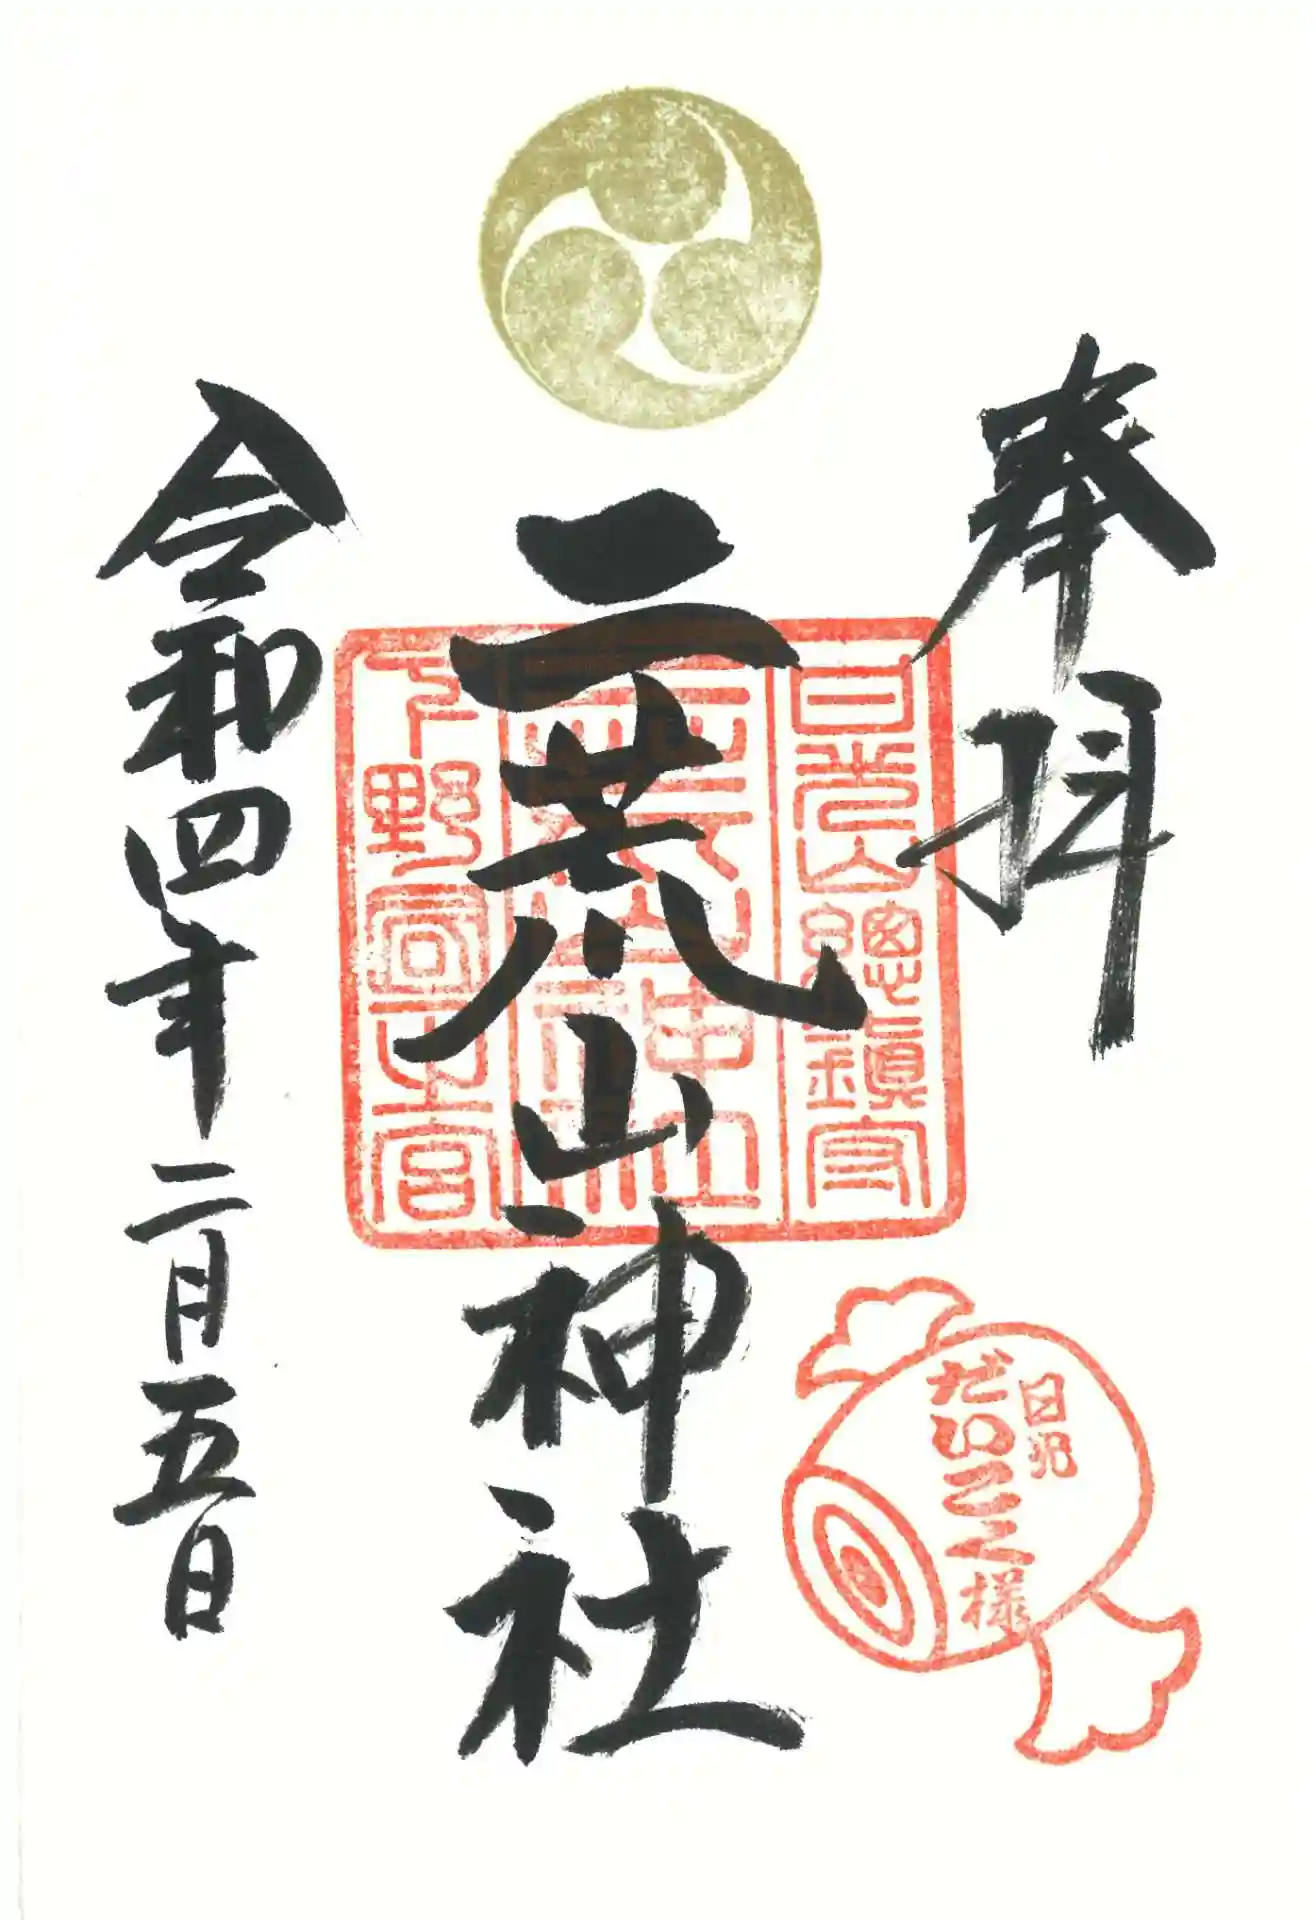 奉拝
日光山總鎮守
二荒山神社
二荒山神社
下野國一之宮
令和四年二月五日
日光
だいこく様